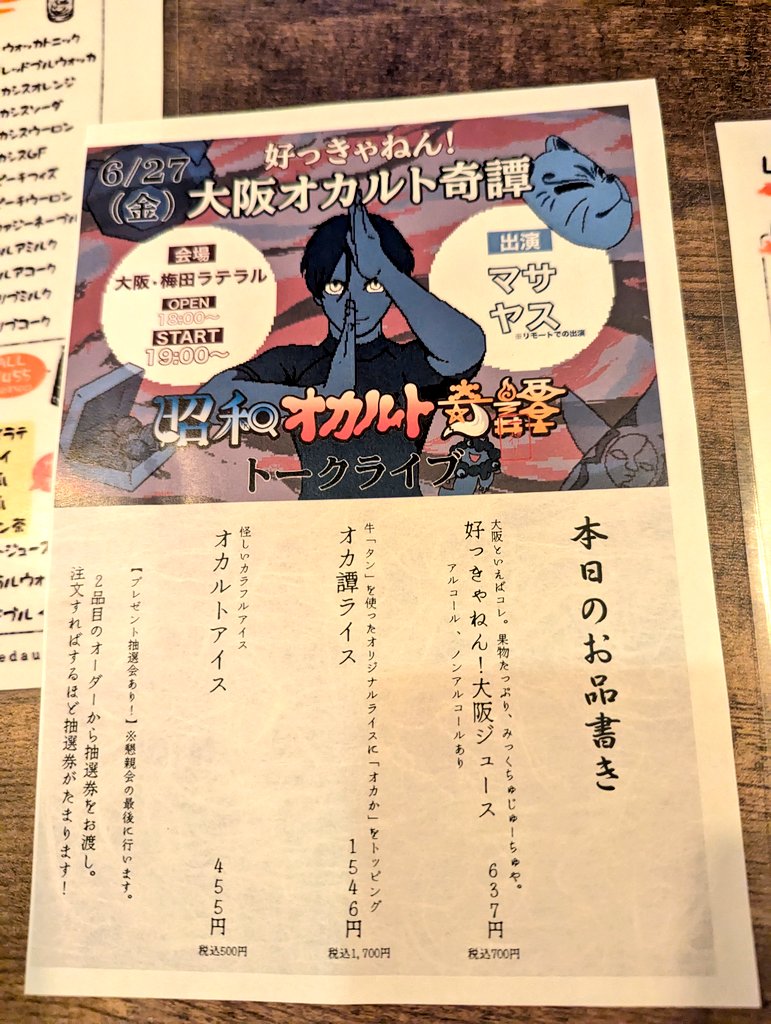 ウォッカトニック
レッドブルウォッカ
カシスオレンジ
カシスソーダ
カシスウーロン
カシスGF
ピーチフィズ
ピーチウーロン
ファジーネーブル
6/27
(金)
好っきゃねん!
大阪オカルト奇譚
会場
大阪・梅田ラテラル
OPEN
18:00~
START
19:00~
出演
マサ
ヤス
※リモートでの出演
昭和オカルト奇譚
トークライブ
本日のお品書き
大阪といえばコレ。果物たっぷり、みっくちゅじゅーちゅや。
好っきゃねん!大阪ジュース 637円
税込700円
アルコール、ノンアルコールあり
牛「タン」を使ったオリジナルライスに「オカか」をトッピング
オカ譚ライス 1546円
税込1,700円
怪しいカラフルアイス
オカルトアイス 455円
税込500円
【プレゼント抽選会あり!】※懇親会の最後に行います。
2品目のオーダーから抽選券をお渡し。
注文すればするほど抽選券がたまります!